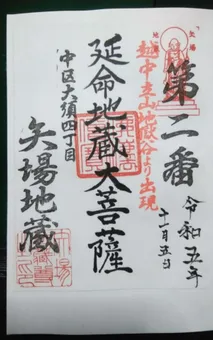 第二番
越中立山地獄谷より出現
延命地蔵大菩薩
中区大須四丁目
矢場地蔵
令和五年
十一月五日